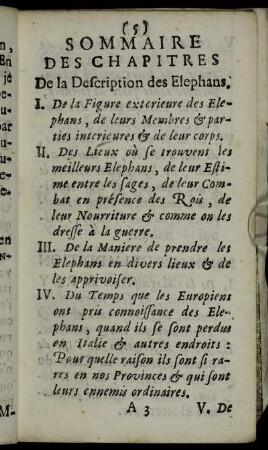 (5)
SOMMAIRE
DES CHAPITRES
De la Deſcription des Elephans.
I. De la Figure exterieure des Ele-
phans, de leurs Membres & par-
ties interieures & de leur corps.
II. Des Lieux où ſe trouvent les
meilleurs Elephans, de leur Eſti-
me entre les ſages, de leur Com-
bat en préſence des Rois, de
leur Nourriture & comme on les
dreſſe à la guerre.
III. De la Maniere de prendre les
Elephans en divers lieux & de
les apprivoiſer.
IV. Du Temps que les Europiens
ont pris connoiſſance des Ele-
phans, quand ils ſe ſont perdus
en Italie & autres endroits :
Pour quelle raiſon ils ſont ſi ra-
res en nos Provinces & qui ſont
leurs ennemis ordinaires.
A 3 V. De